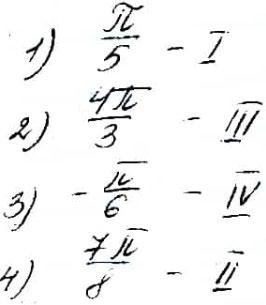 1) π/5 - I
2) 4π/3 - III
3) -π/6 - IV
4) 7π/8 - II